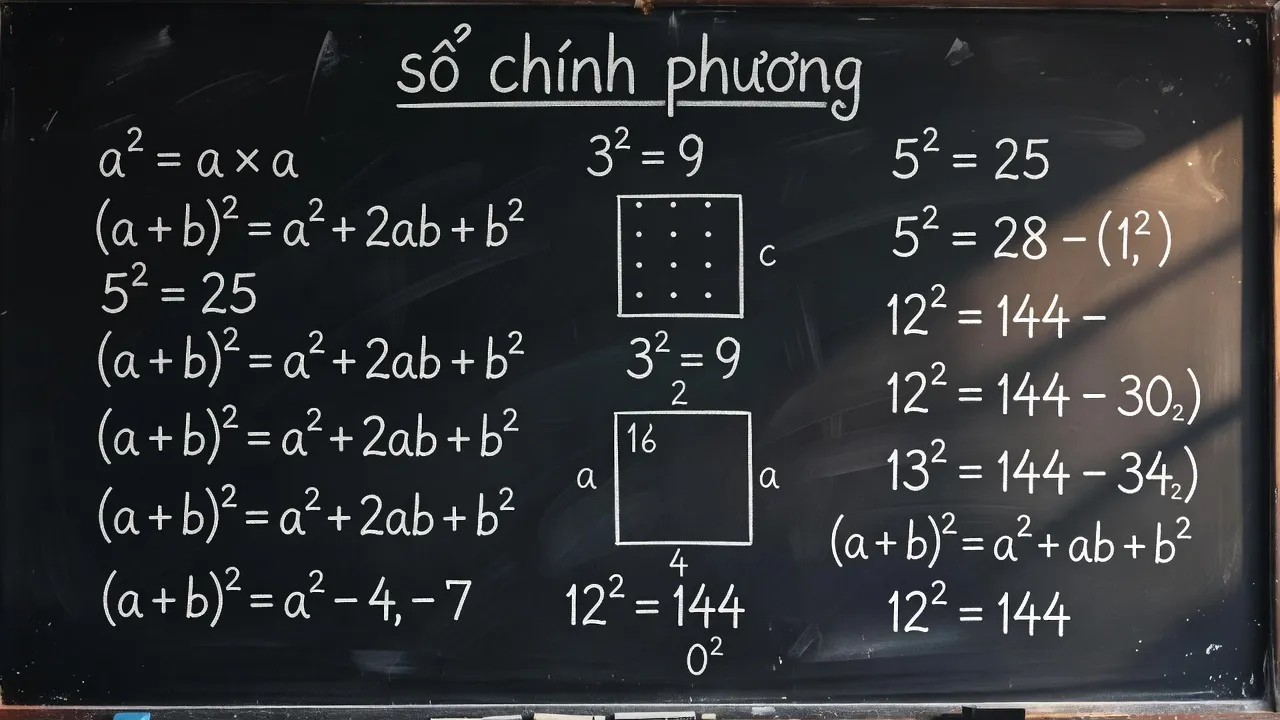 sổ chính phương
a² = a × a
(a + b)² = a² + 2ab + b²
5² = 25
(a + b)² = a² + 2ab + b²
(a + b)² = a² + 2ab + b²
(a + b)² = a² + 2ab + b²
(a + b)² = a² − 4, − 7
3² = 9
c
3² = 9
2
16
a
a
4
12² = 144
0²
5² = 25
5² = 28 − (1,²)
12² = 144 −
12² = 144 − 30₂)
13² = 144 − 34₂)
(a + b)² = a² + ab + b²
12² = 144